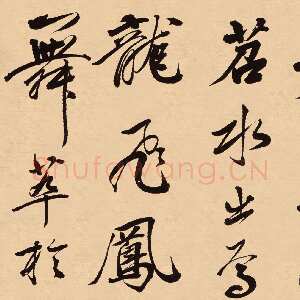 苕水出焉
龍飛鳳
舞萃於
Shufawang.CN